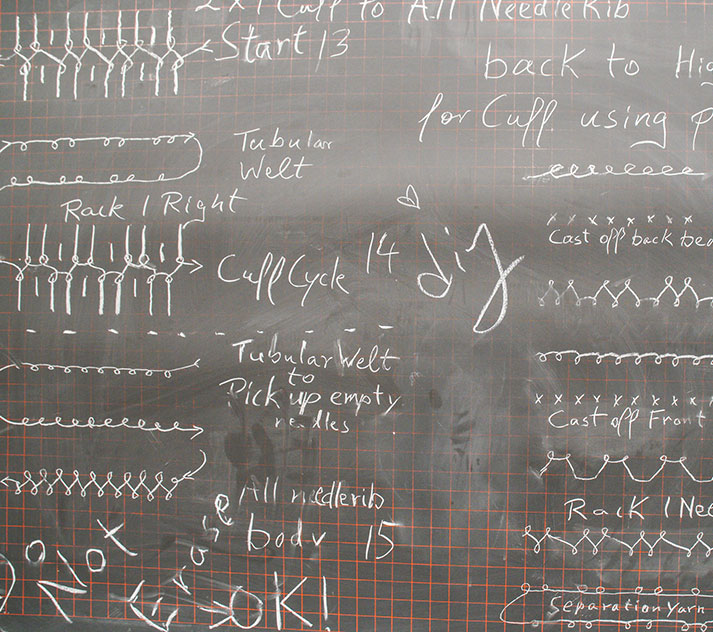 2x1 Cuff to All Needle Rib
Start 13
back to
for Cuff using
Tubular
Welt
Rack 1 Right
Cast off back bed
Cuff Cycle 14
diy
Tubular Welt
to
Pick up empty
needles
Cast off Front
All needlerib
body 15
Rack 1
OK!
Separation Yarn